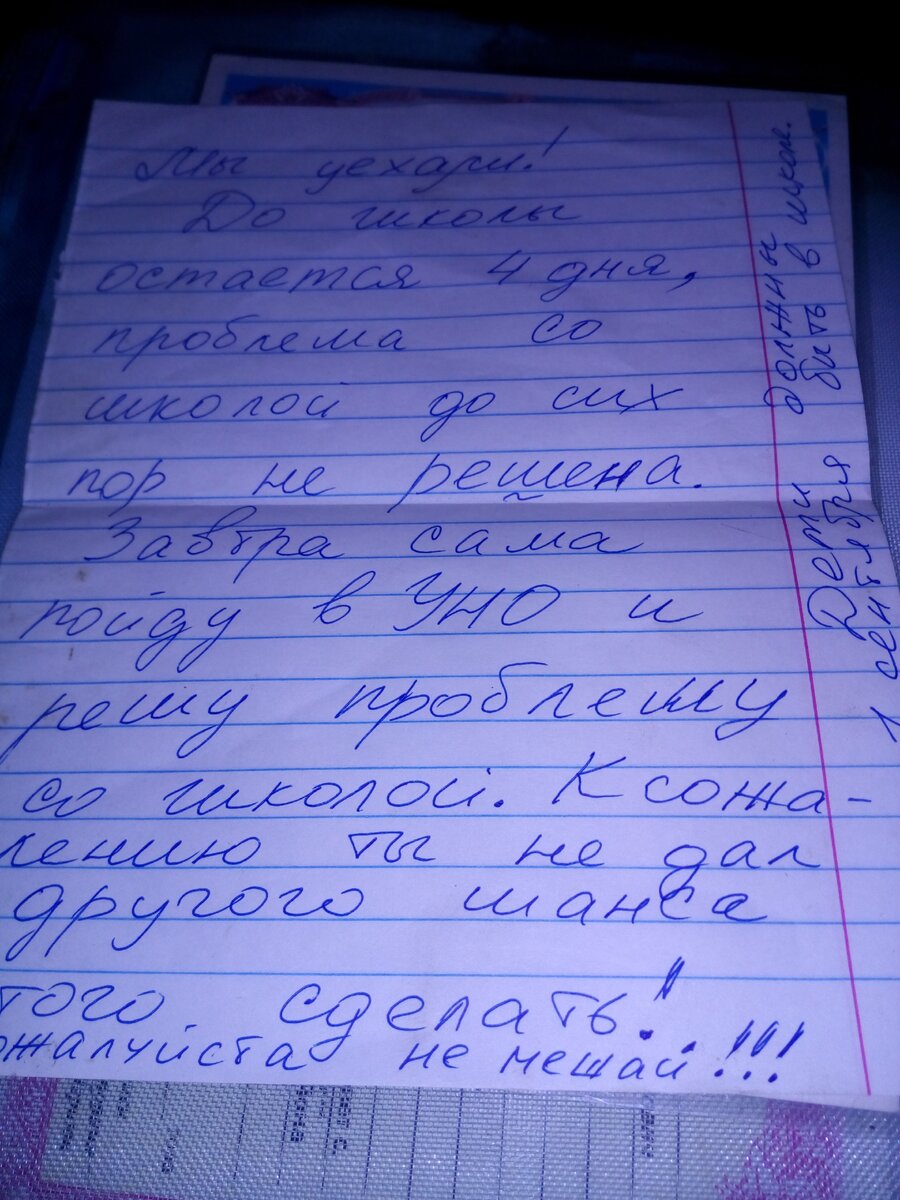 Мы уехали!
До школы
остается 4 дня,
проблема со
школой до сих
пор не решена.
Завтра сама
пойду в УНО и
решу проблему
со школой. К сожа-
лению ты не дал
другого шанса
того сделать!
ожалуйста не мешай!!!
Дети должны
1 сентября быть в школе.